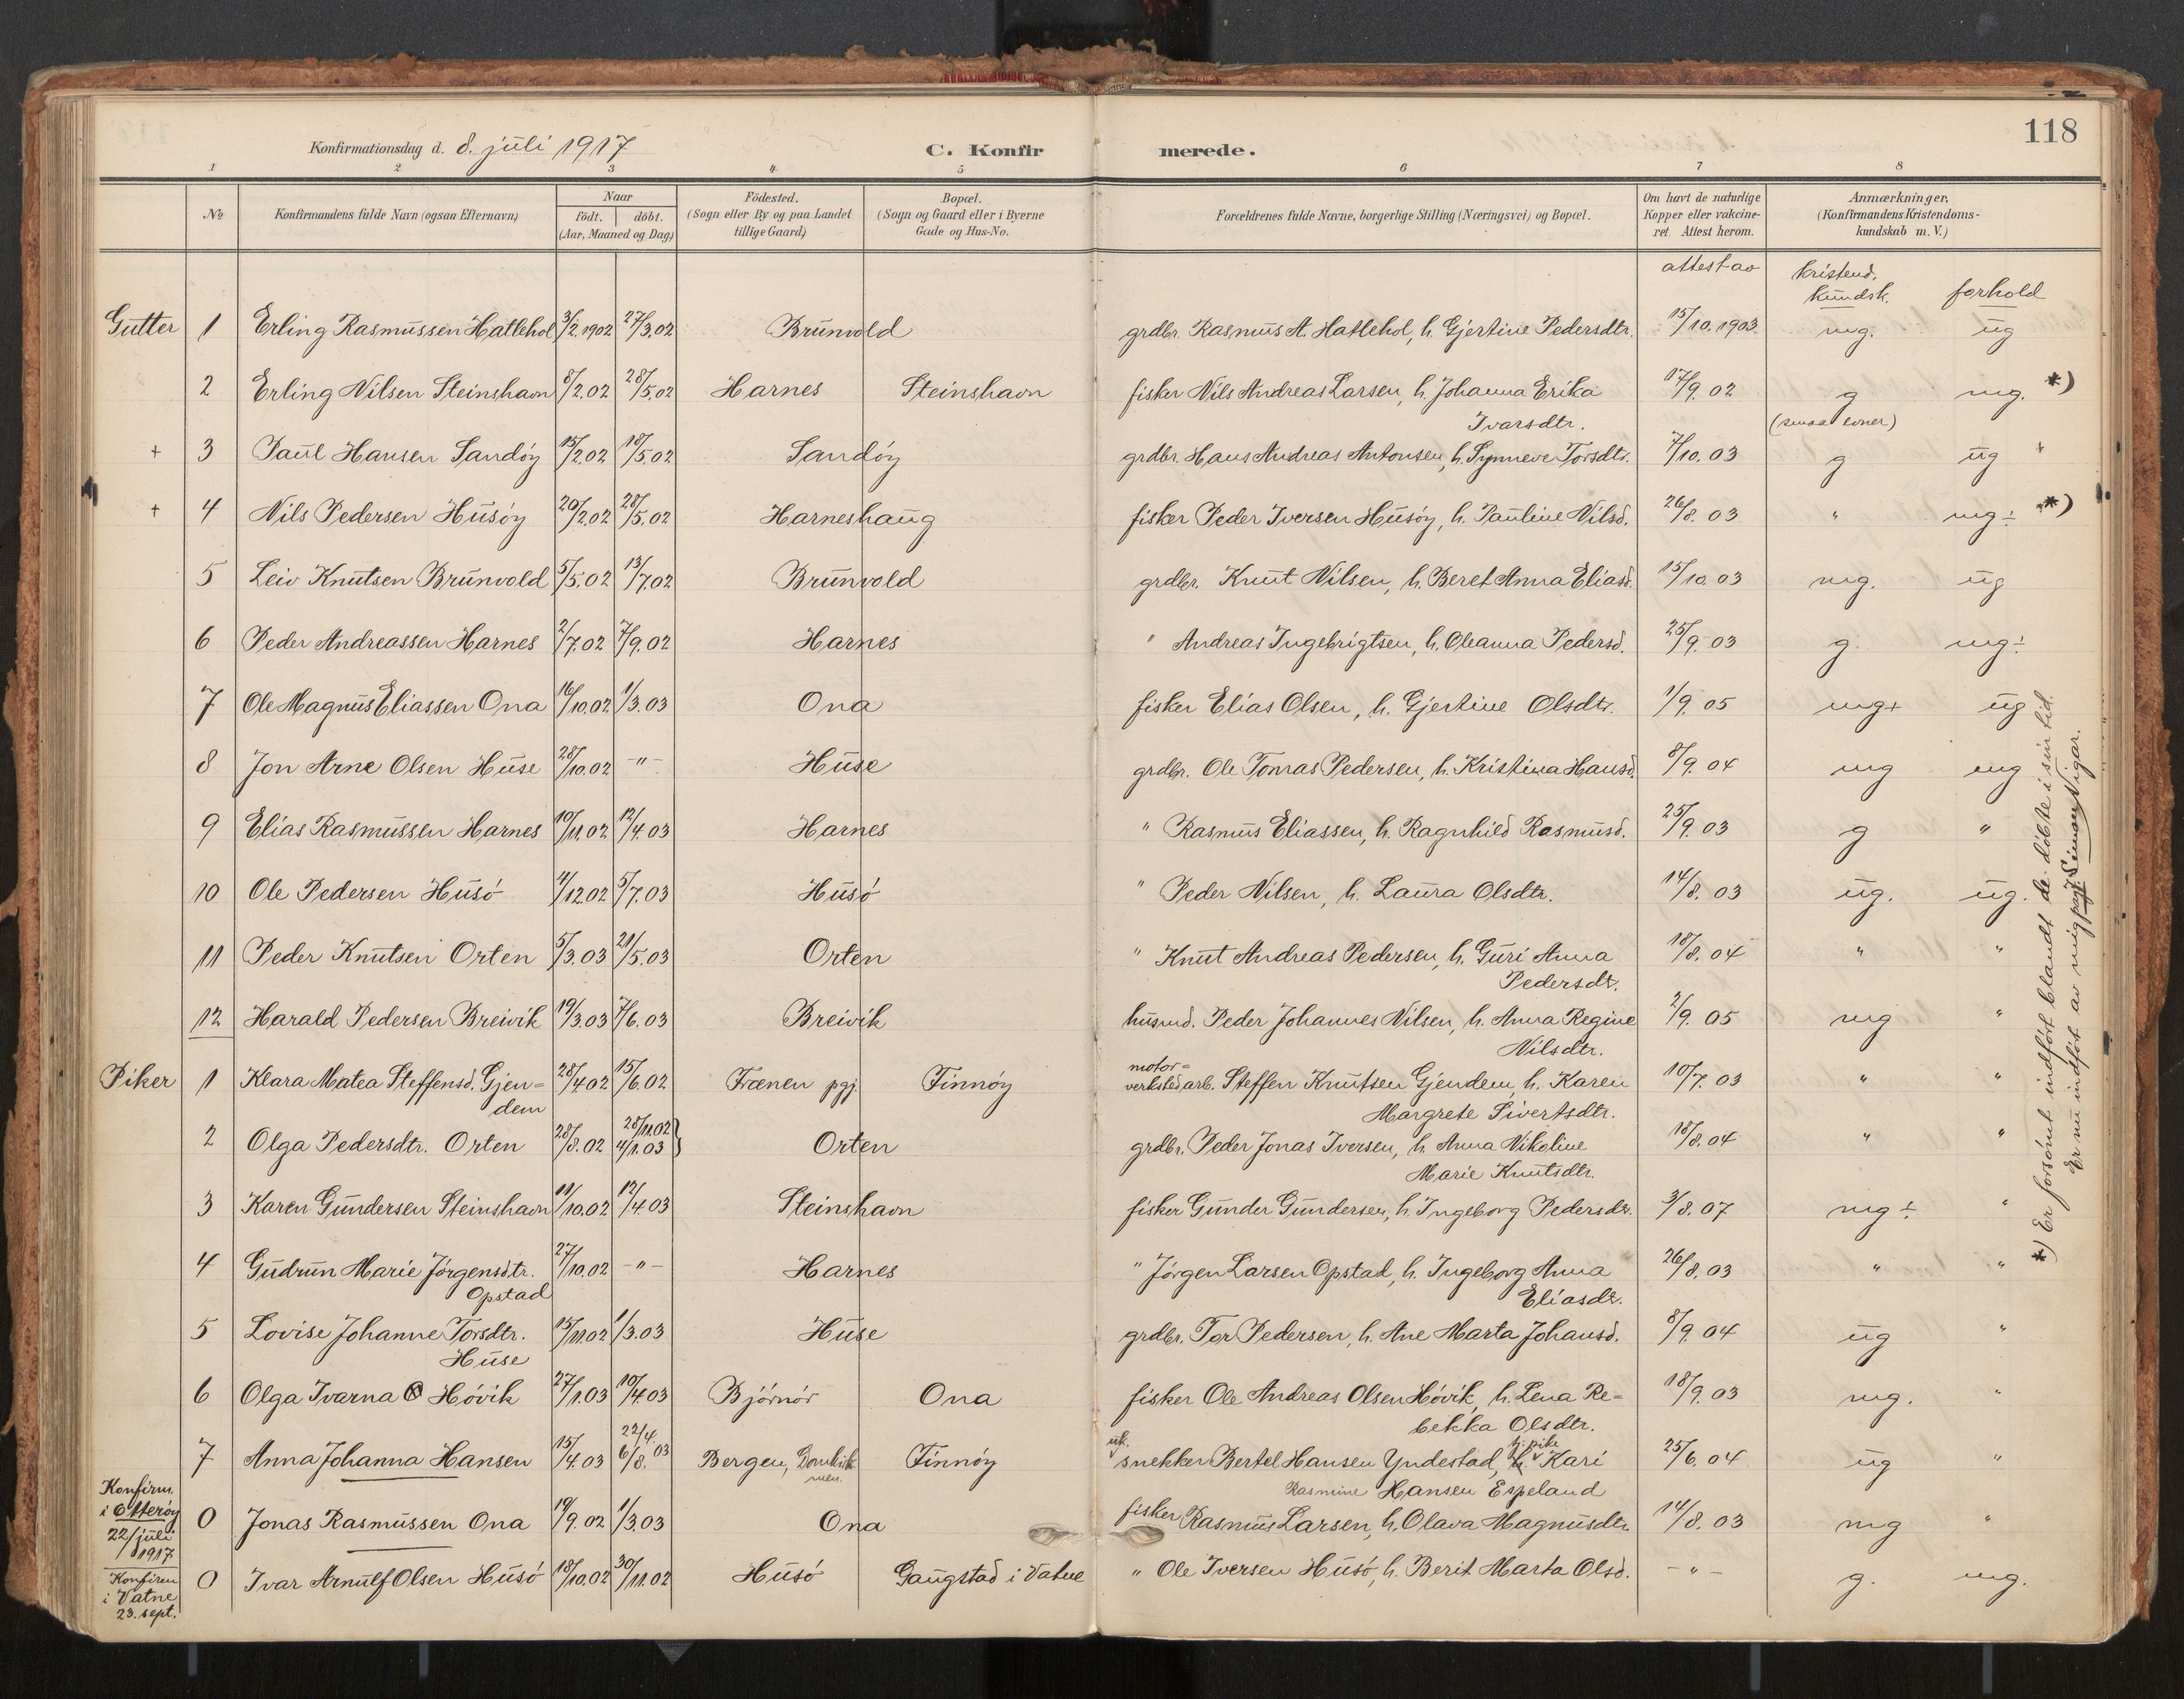 118
Konfirmationsdag d. 8. juli 1917 C. Konfirmerede.
1 2 3 4 5 6 7 8
No Konfirmandens fulde Navn (ogsaa Efternavn) Naar födt. döbt. (Aar, Maaned og Dag) Födested. (Sogn eller By og paa Landet tillige Gaard) Bopæl. (Sogn og Gaard eller i Byerne Gade og Hus-No. Forældrenes fulde Navne, borgerlige Stilling (Næringsvei) og Bopæl. Om havt de naturlige Kopper eller vakcineret. Attest herom. Anmærkninger, (Konfirmandens Kristendomskundskab m. V.)
attest av kristend. kundsk. forhold
Gutter 1 Erling Rasmussen Hatlehol 3/2.1902 27/3.02 Brunvold grdbr. Rasmus A. Hatlehol, h. Gjertine Pedersdtr. 15/10.1903 mg. ug
2 Erling Nilsen Steinshavn 8/2.02 28/5.02 Harnes Steinshavn fisker Nils Andreas Larsen, h. Johanna Erika 17/9.02 g mg. *)
Ivarsdtr. (smaa evner)
+ 3 Paul Hansen Sandöy 15/2.02 18/5.02 Sandöy grdbr. Hans Andreas Antonsen, h. Synneve Torsdtr. 7/10.03 g ug "
+ 4 Nils Pedersen Husöy 20/2.02 28/5.02 Harneshaug fisker Peder Iversen Husöy, h. Pauline Nilsd. 26/8.03 " mg÷ *)
5 Leiv Knutsen Brunvold 5/5.02 13/7.02 Brunvold grdbr. Knut Nilsen, h. Beret Anna Eliasd. 15/10.03 mg. ug
6 Peder Andreassen Harnes 2/7.02 7/9.02 Harnes " Andreas Ingebrigtsen, h. Oleanna Pedersd. 25/9.03 g. mg÷
7 Ole Magnus Eliassen Ona 16/10.02 1/3.03 Ona fisker Elias Olsen, h. Gjertine Olsdtr. 1/9.05 mg+ ug
8 Jon Arne Olsen Huse 28/10.02 -"- Huse grdbr. Ole Tomas Pedersen, h. Kristina Hansd. 8/9.04 mg mg
9 Elias Rasmussen Harnes 10/11.02 12/4.03 Harnes " Rasmus Eliassen, h. Ragnhild Rasmusd. 25/9.03 g "
10 Ole Pedersen Husö 4/12.02 5/7.03 Husö " Peder Nilsen, h. Laura Olsdtr. 14/8.03 ug. ug.
11 Peder Knutsen Orten 5/3.03 21/5.03 Orten " Knut Andreas Pedersen, h. Guri Anna 18/8.04 " "
Pedersdt.
12 Harald Pedersen Breivik 19/3.03 7/6.03 Breivik husmd. Peder Johannes Nilsen, h. Anna Regine 2/9.05 mg "
Nilsdtr.
motor=
Piker 1 Klara Matea Steffensd. Gjen= 28/4.02 15/6.02 Frænen pgj. Finnöy verkstedarb. Steffen Knutsen Gjendem, h. Karen 10/7.03 " "
dem Margrete Sivertsdtr.
2 Olga Pedersdtr. Orten 28/8.02 28/11.02 4/1.03} Orten grdbr. Peder Jonas Iversen, h. Anna Nikoline 18/8.04 " "
Marie Knutsdtr.
3 Karen Gundersen Steinshavn 11/10.02 12/4.03 Steinshavn fisker Gunder Gundersen, h. Ingeborg Pedersdt. 3/8.07 mg÷ "
4 Gudrun Marie Jörgensdtr. 27/10.02 -"- Harnes " Jörgen Larsen Opstad, h. Ingeborg Anna 26/8.03 " "
Opstad Eliasdt.
5 Lovise Johanne Torsdtr. 15/11.02 1/3.03 Huse grdbr. Tor Pedersen, h. Ane Marta Johansd. 8/9.04 ug "
Huse
6 Olga Ivarna Hövik 27/1.03 10/4.03 Björnör Ona fisker Ole Andreas Olsen Hövik, h. Lena Re= 18/9.03 mg. "
bekka Olsdtr.
7 Anna Johanna Hansen 15/4.03 22/4. 6/8.03 Bergen, Domkirk men. Finnöy uk. snekker Bertel Hansen Yndestad, h. tj.pike Kari 25/6.04 ug "
Rasmine Hansen Espeland
Konfirm.
i Otteröy
22/juli
1917
0 Jonas Rasmussen Ona 19/9.02 1/3.03 Ona fisker Rasmus Larsen, h. Olava Magnusdtr. 14/8.03 mg "
Konfirm
i Vatne
23. sept.
0 Ivar Arnulf Olsen Husö 18/10.02 30/11.02 Husö Gangstad i Vatne " Ole Iversen Husö, h. Berit Marta Olsd. -"- g. mg.
*) Er forsömt indfört blandt de döbte i sin tid.
Er nu indföt av mig pag 7 Simon Vigar.